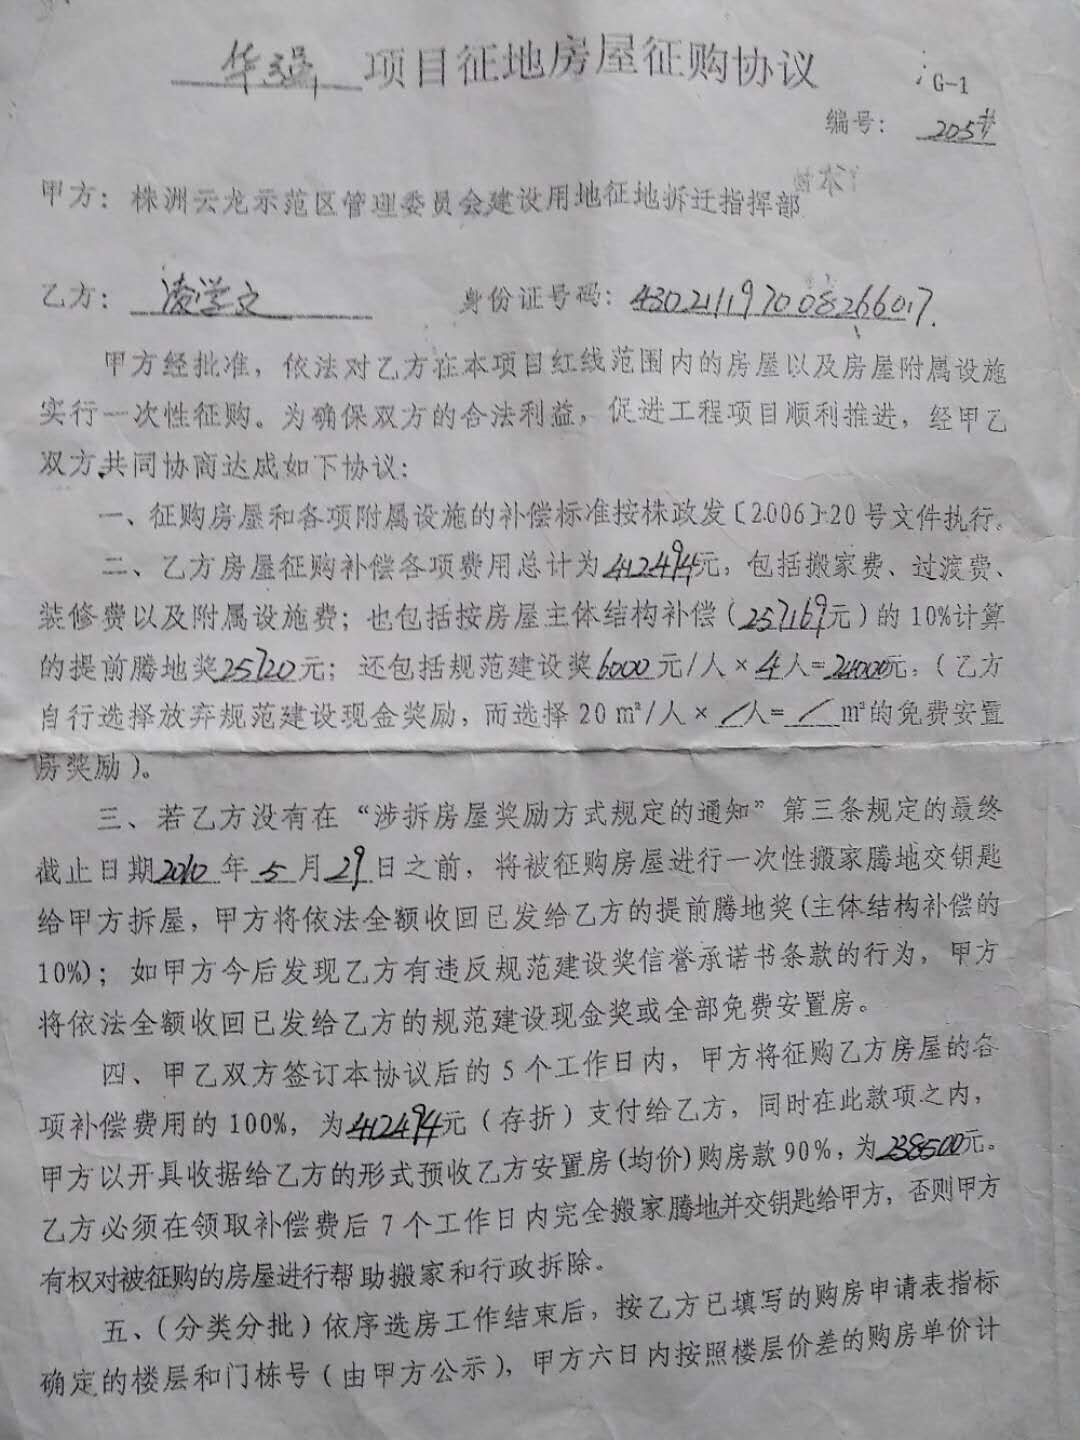 华强 项目征地房屋征购协议
G-1
编号： 205#
甲方：株洲云龙示范区管理委员会建设用地征地拆迁指挥部
乙方： 凌学文 身份证号码：430211197008266017.
甲方经批准，依法对乙方在本项目红线范围内的房屋以及房屋附属设施
实行一次性征购。为确保双方的合法利益，促进工程项目顺利推进，经甲乙
双方共同协商达成如下协议：
一、征购房屋和各项附属设施的补偿标准按株政发〔2006〕20号文件执行。
二、乙方房屋征购补偿各项费用总计为412494元，包括搬家费、过渡费、
装修费以及附属设施费；也包括按房屋主体结构补偿（257169元）的10%计算
的提前腾地奖25720元；还包括规范建设奖6000元/人×4人=24000元。（乙方
自行选择放弃规范建设现金奖励，而选择20㎡/人×／人=／㎡的免费安置
房奖励）。
三、若乙方没有在“涉拆房屋奖励方式规定的通知”第三条规定的最终
截止日期2010年5月29日之前，将被征购房屋进行一次性搬家腾地交钥匙
给甲方拆屋，甲方将依法全额收回已发给乙方的提前腾地奖(主体结构补偿的
10%)；如甲方今后发现乙方有违反规范建设奖信誉承诺书条款的行为，甲方
将依法全额收回已发给乙方的规范建设现金奖或全部免费安置房。
四、甲乙双方签订本协议后的5个工作日内，甲方将征购乙方房屋的各
项补偿费用的100%，为412494元（存折）支付给乙方，同时在此款项之内，
甲方以开具收据给乙方的形式预收乙方安置房(均价)购房款90%，为238500元。
乙方必须在领取补偿费后7个工作日内完全搬家腾地并交钥匙给甲方，否则甲方
有权对被征购的房屋进行帮助搬家和行政拆除。
五、（分类分批）依序选房工作结束后，按乙方已填写的购房申请表指标
确定的楼层和门栋号（由甲方公示），甲方六日内按照楼层价差的购房单价计